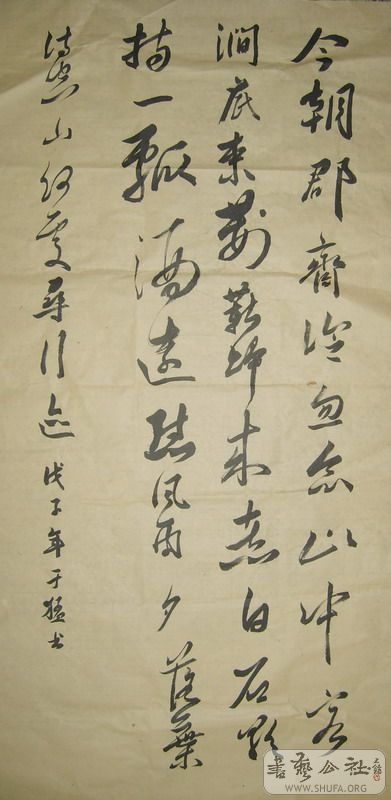 今朝郡齋冷忽念山中客
澗底束荆薪歸来煮白石欲
持一瓢酒遠慰風雨夕落葉
滿空山何處尋行迹 戊子年于猛书
書藝公社
WWW.SHUFA.ORG